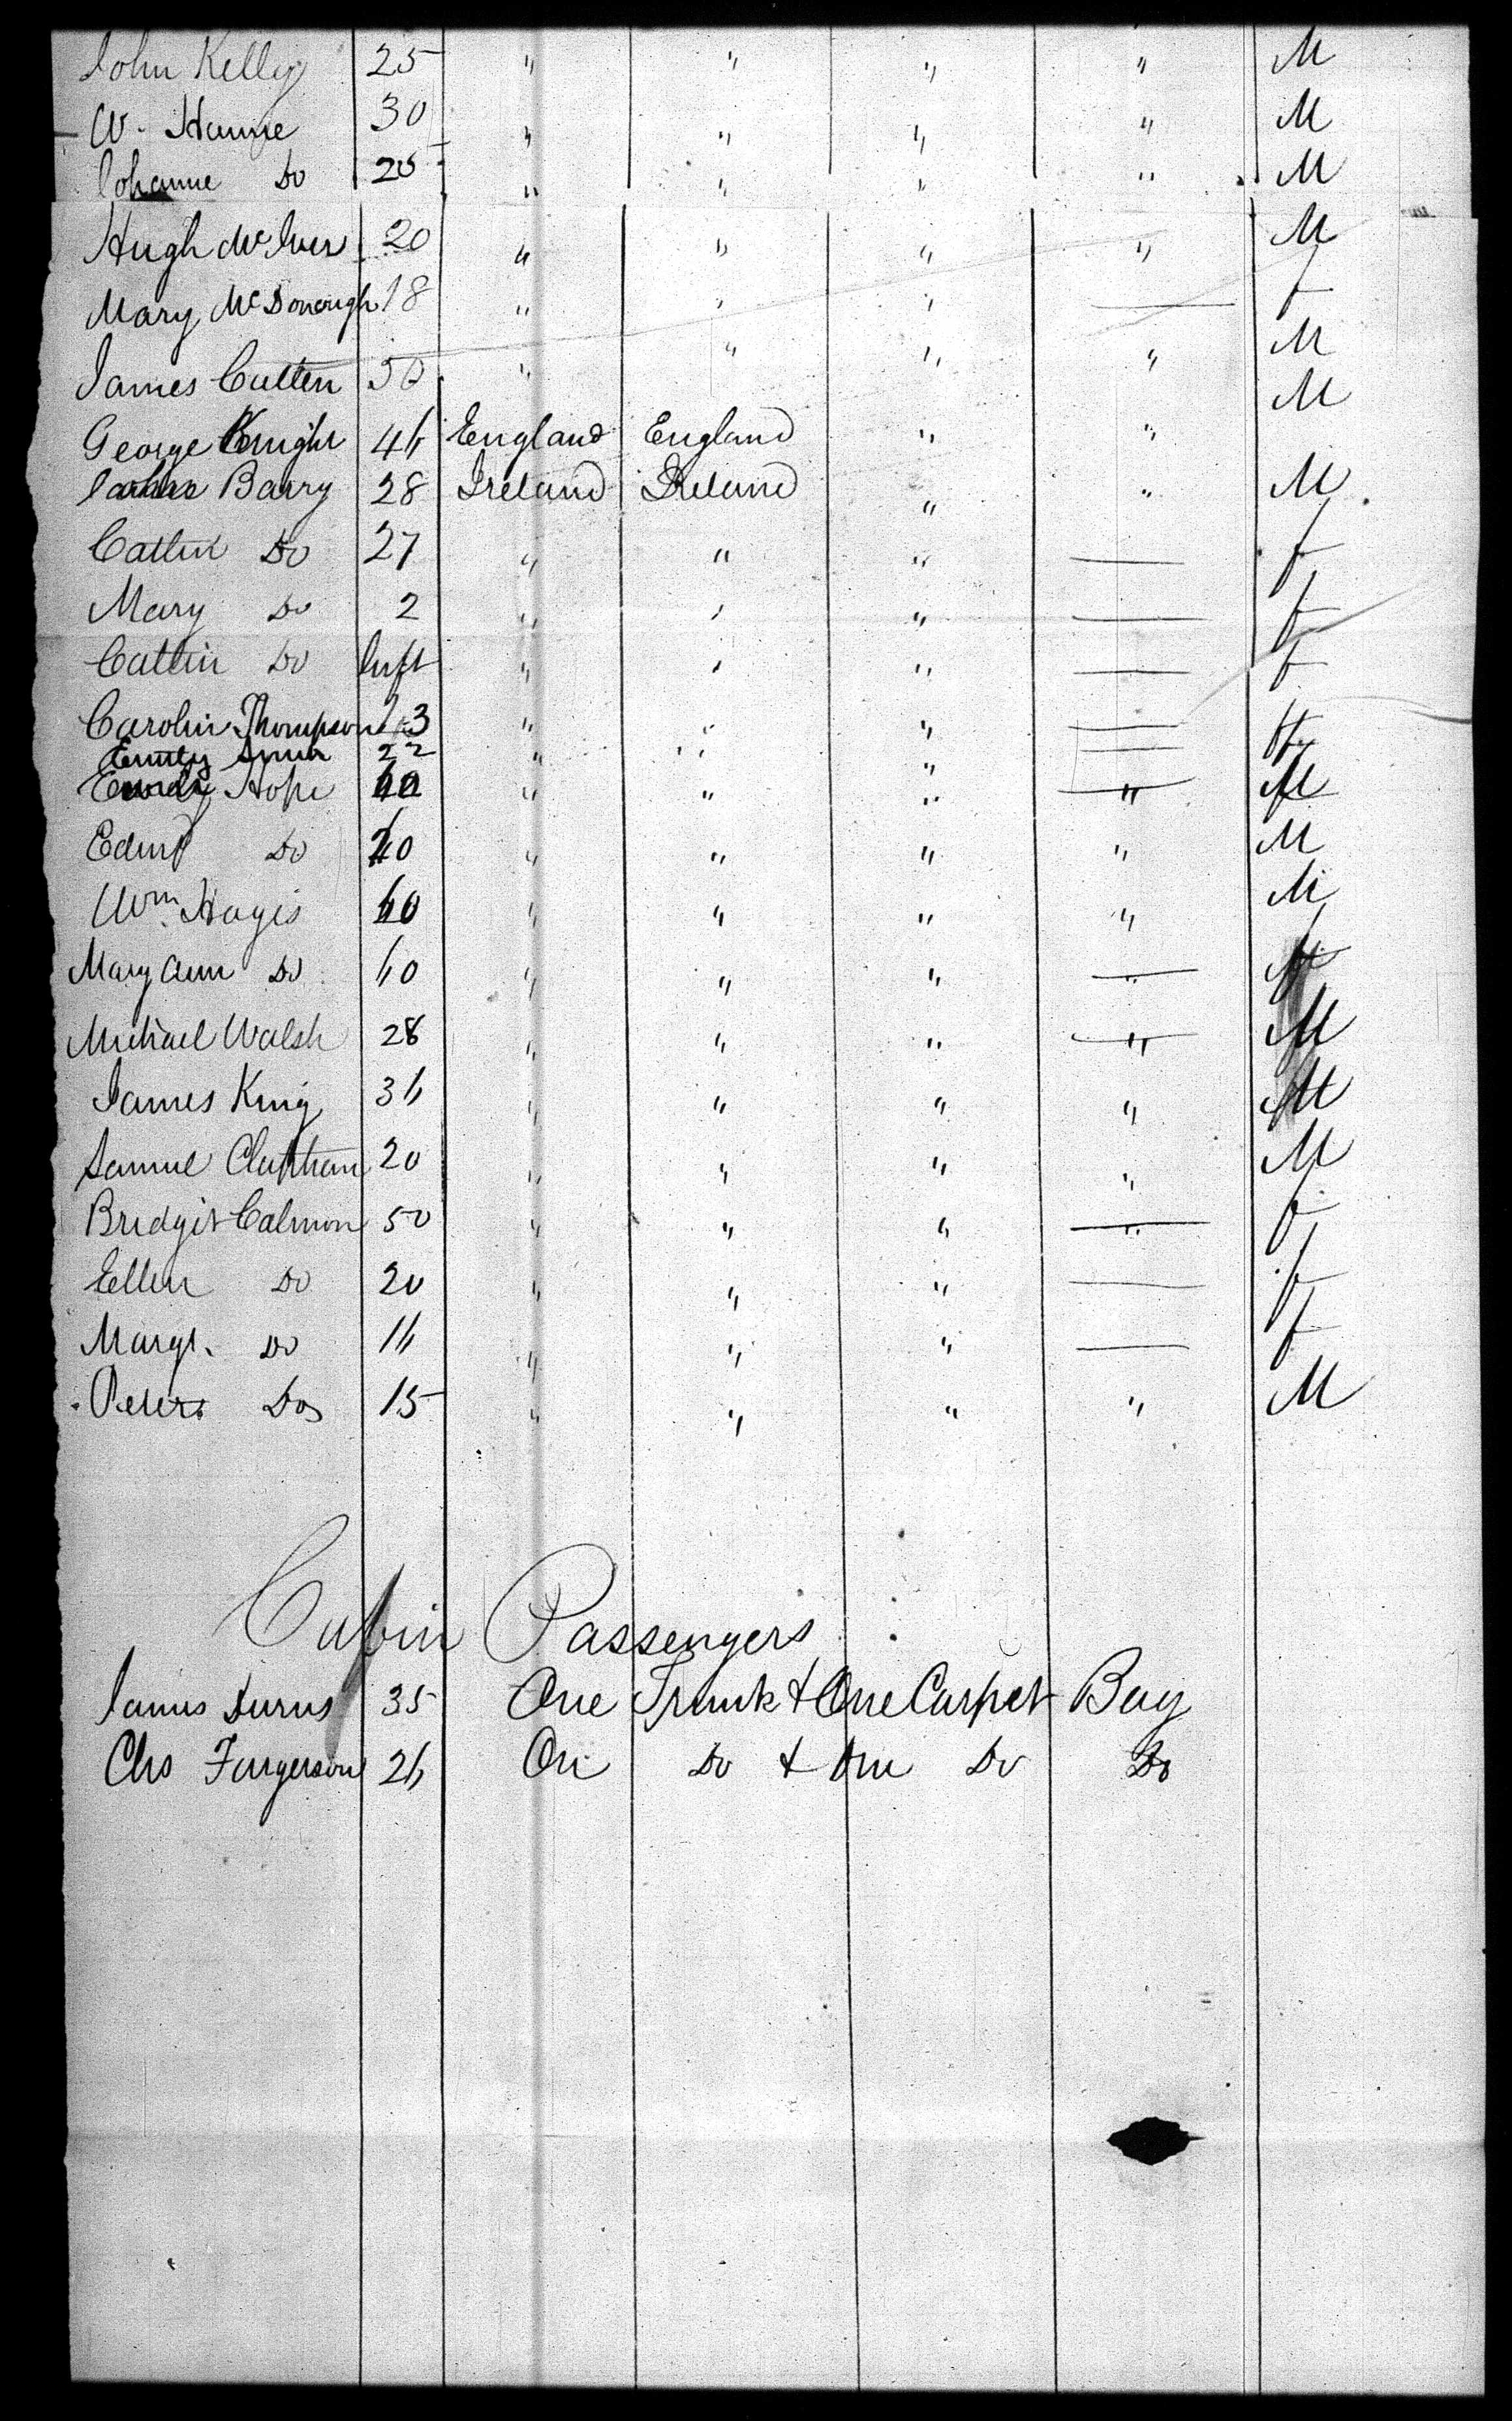 John Kelly 25 " " " " M
W. Hanne 30 " " " " M
Johanne Do 25 " " " " M
Hugh McIver 20 " " " " M
Mary McDonough 18 " " " — f
James Cutten 50 " " " " M
George Knight 46 England England " " M
Barry 28 Ireland Ireland " " M
Cathn Do 27 " " " — f
Mary Do 2 " " " — f
Cathn Do Inft " " " — f
Carolin Thompson 13 " " " — f
Emily 22 " " " — f
Hope " " " " M
Edmd Do " " " " M
Wm Hayis " " " " M
Mary Ann Do 60 " " " —
Michael Walsh 28 " " " " M
James King 36 " " " " M
Samuel Clapham 20 " " " " M
Bridgit Calmon 50 " " " — f
Ellen Do 20 " " " — f
Margt. Do 16 " " " — f
Peter Do 15 " " " " M
Cabin Passengers
James Durns 35 One Trunk & One Carpet Bag
Chs Furgerson 26 One Do & One Do Do